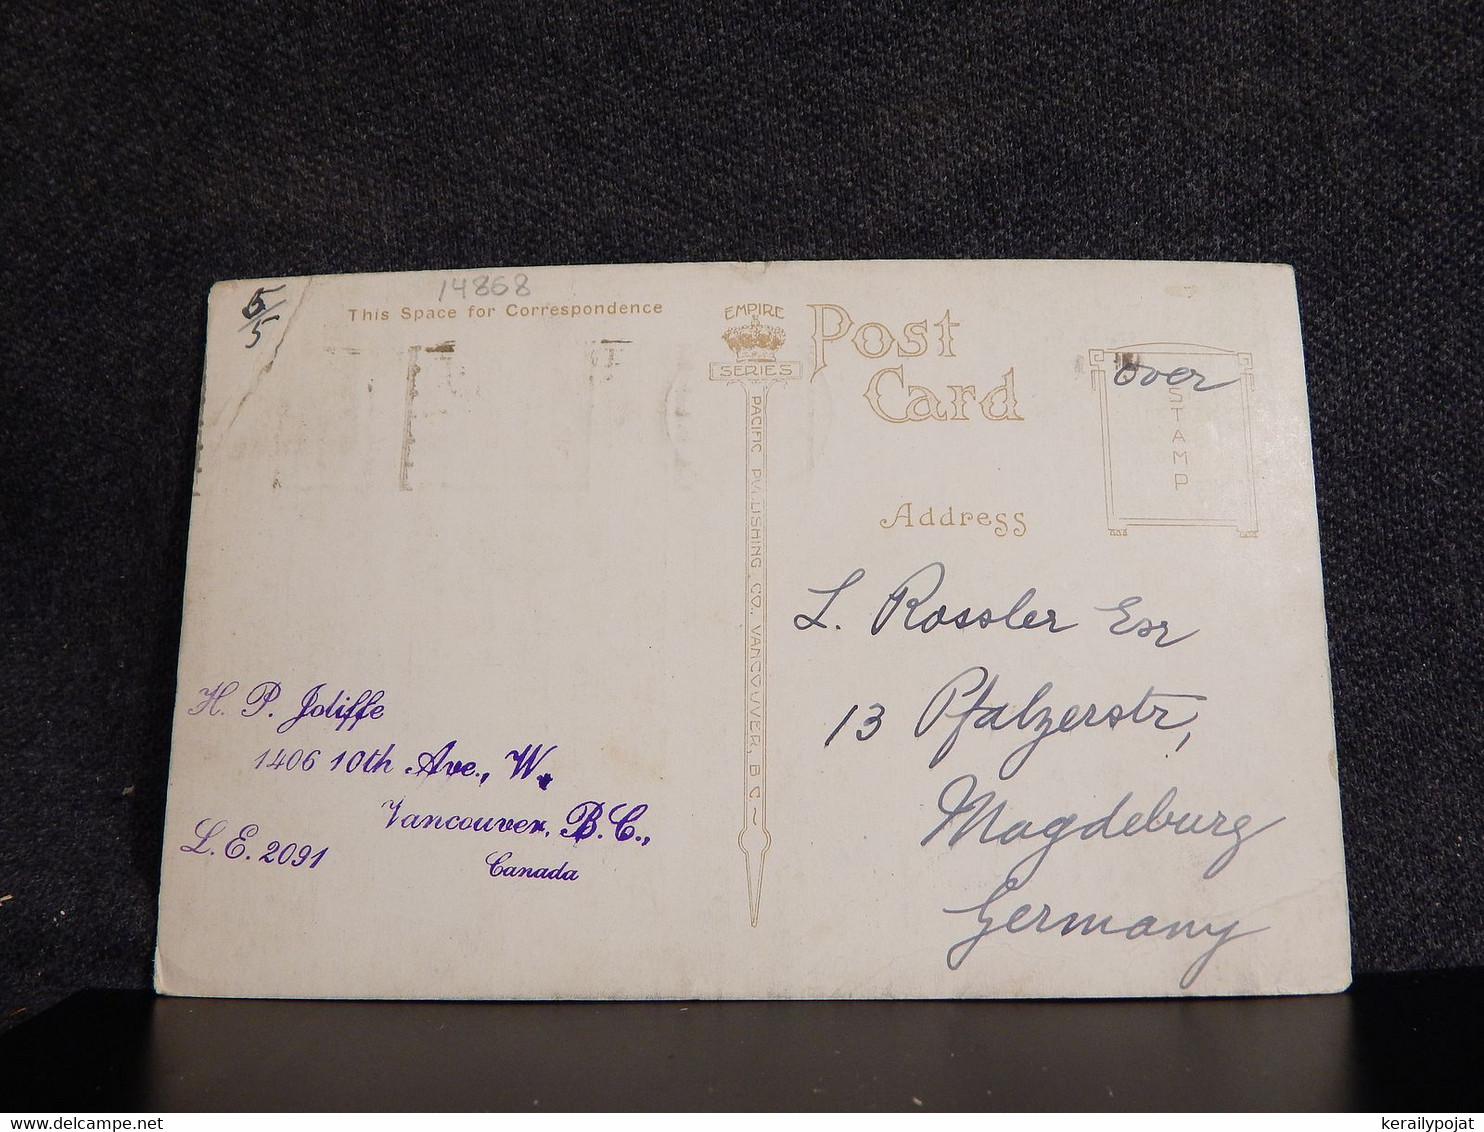 14868
5/5
This Space for Correspondence
EMPIRE
SERIES
PACIFIC PUBLISHING CO., VANCOUVER, B C ~
Post
Card
over
STAMP
Address
L. Rossler Esr
13 Pfalzerstr,
Magdeburg
Germany
H. P. Joliffe
1406 10th Ave., W.
Vancouver, B.C.,
L.E. 2091
Canada
kerailypojat